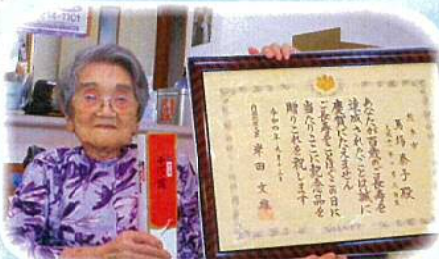 4-1101
熊本市
馬場泰子殿
あなたが百歳のご長寿を
達成されたことは誠に
慶賀にたえません
ご長寿をことほぐこの日に
当たりここに記念品を
贈りこれを祝します
内閣総理大臣 岸田文雄